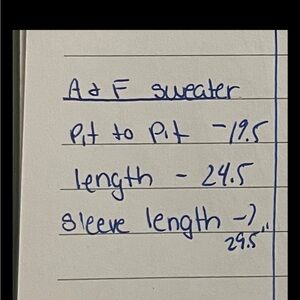 A & F sweater
Pit to Pit - 19.5
length - 24.5
sleeve length ->
29.5"